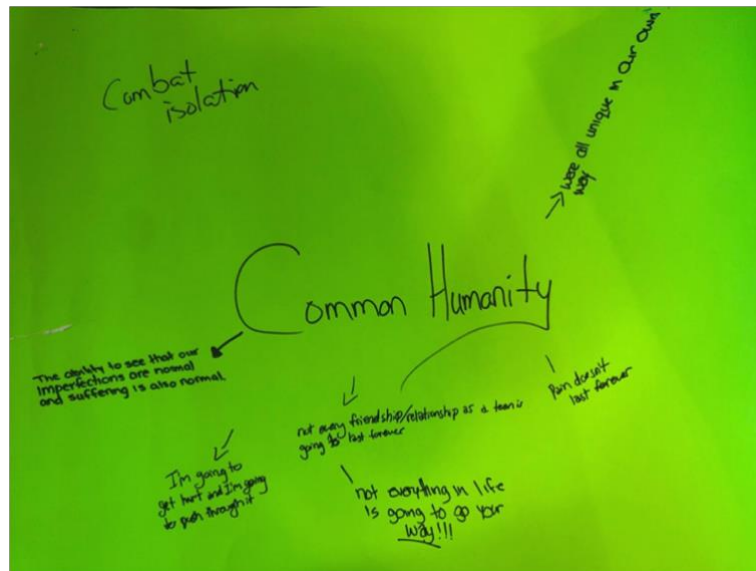 Combat
isolation
→ were all unique in our own
way
Common Humanity
The ability to see that our
imperfections are normal
and suffering is also normal.
not every friendship/relationship as a teen is
going to last forever
Pain doesn't
last forever
I'm going to
get hurt and I'm going
to push through it
not everything in life
is going to go your
way!!!